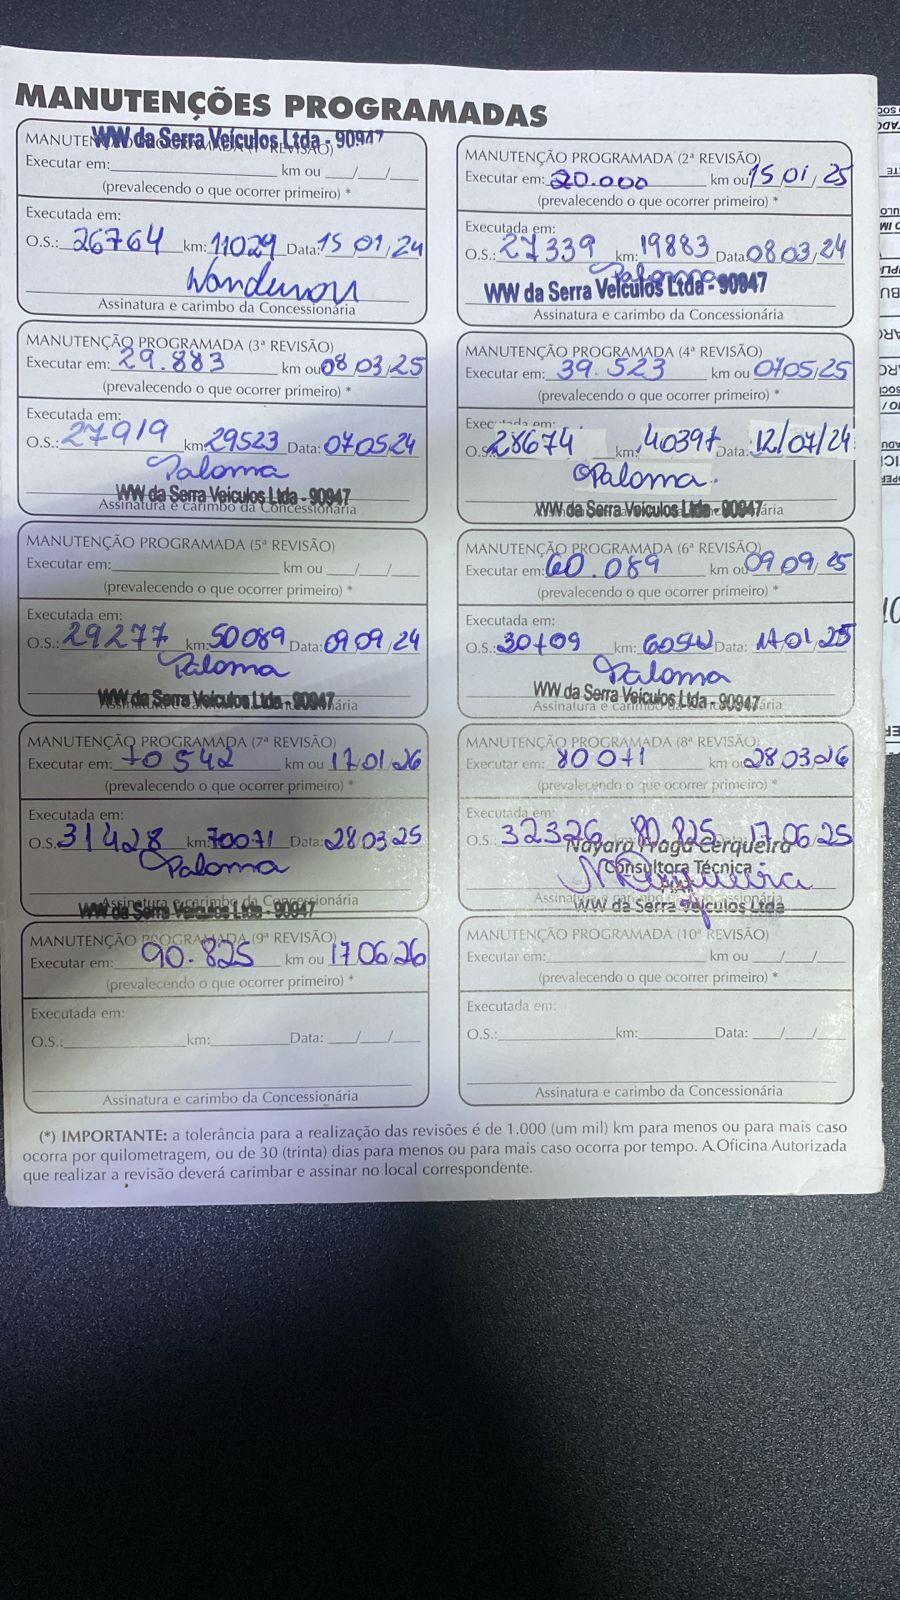 MANUTENÇÕES PROGRAMADAS
WW da Serra Veículos Ltda - 90947
Executar em: km ou / /
(prevalecendo o que ocorrer primeiro) *
Executada em:
O.S.: 26764 km: 11029 Data: 15 01 24
Assinatura e carimbo da Concessionária
MANUTENÇÃO PROGRAMADA (2ª REVISÃO)
Executar em: 20.000 km ou 15/01/25
(prevalecendo o que ocorrer primeiro) *
Executada em:
O.S.: 27339 km: 19883 Data: 08 03 24
Paloma
WW da Serra Veículos Ltda - 90947
Assinatura e carimbo da Concessionária
MANUTENÇÃO PROGRAMADA (3ª REVISÃO)
Executar em: 29.883 km ou 08 03 25
(prevalecendo o que ocorrer primeiro) *
Executada em:
O.S.: 27919 km: 29523 Data: 07 05 24
Paloma
WW da Serra Veículos Ltda - 90947
Assinatura e carimbo da Concessionária
MANUTENÇÃO PROGRAMADA (4ª REVISÃO)
Executar em: 39.523 km ou 07 05 25
(prevalecendo o que ocorrer primeiro) *
Executada em:
O.S. 28674 km: 40397 Data: 12/07/24
Paloma
WW da Serra Veículos Ltda - 90947
MANUTENÇÃO PROGRAMADA (5ª REVISÃO)
Executar em: km ou / /
(prevalecendo o que ocorrer primeiro) *
Executada em:
O.S.: 29277 km: 50089 Data: 09 09 24
Paloma
WW da Serra Veículos Ltda - 90947
MANUTENÇÃO PROGRAMADA (6ª REVISÃO)
Executar em: 60.089 km ou 09 09 25
(prevalecendo o que ocorrer primeiro) *
Executada em:
O.S.: 30709 km: Data: 17 01 25
Paloma
WW da Serra Veículos Ltda - 90947
Assinatura e carimbo da Concessionária
MANUTENÇÃO PROGRAMADA (7ª REVISÃO)
Executar em: 70542 km ou 17 01 26
(prevalecendo o que ocorrer primeiro) *
Executada em:
O.S. 31428 km: 70071 Data: 28 03 25
Paloma
Assinatura e carimbo da Concessionária
WW da Serra Veículos Ltda - 90947
MANUTENÇÃO PROGRAMADA (8ª REVISÃO)
Executar em: 80071 km ou 28 03 26
(prevalecendo o que ocorrer primeiro) *
Executada em:
O.S.: 32326 80.825 17.06.25
Nayara Braga Cerqueira
Consultora Técnica
WW da Serra Veículos Ltda
MANUTENÇÃO PROGRAMADA (9ª REVISÃO)
Executar em: 90.825 km ou 17 06 26
(prevalecendo o que ocorrer primeiro) *
Executada em:
O.S.: km: Data: / /
Assinatura e carimbo da Concessionária
MANUTENÇÃO PROGRAMADA (10ª REVISÃO)
Executar em: km ou / /
(prevalecendo o que ocorrer primeiro) *
Executada em:
O.S.: km: Data: / /
Assinatura e carimbo da Concessionária
(*) IMPORTANTE: a tolerância para a realização das revisões é de 1.000 (um mil) km para menos ou para mais caso
ocorra por quilometragem, ou de 30 (trinta) dias para menos ou para mais caso ocorra por tempo. A Oficina Autorizada
que realizar a revisão deverá carimbar e assinar no local correspondente.